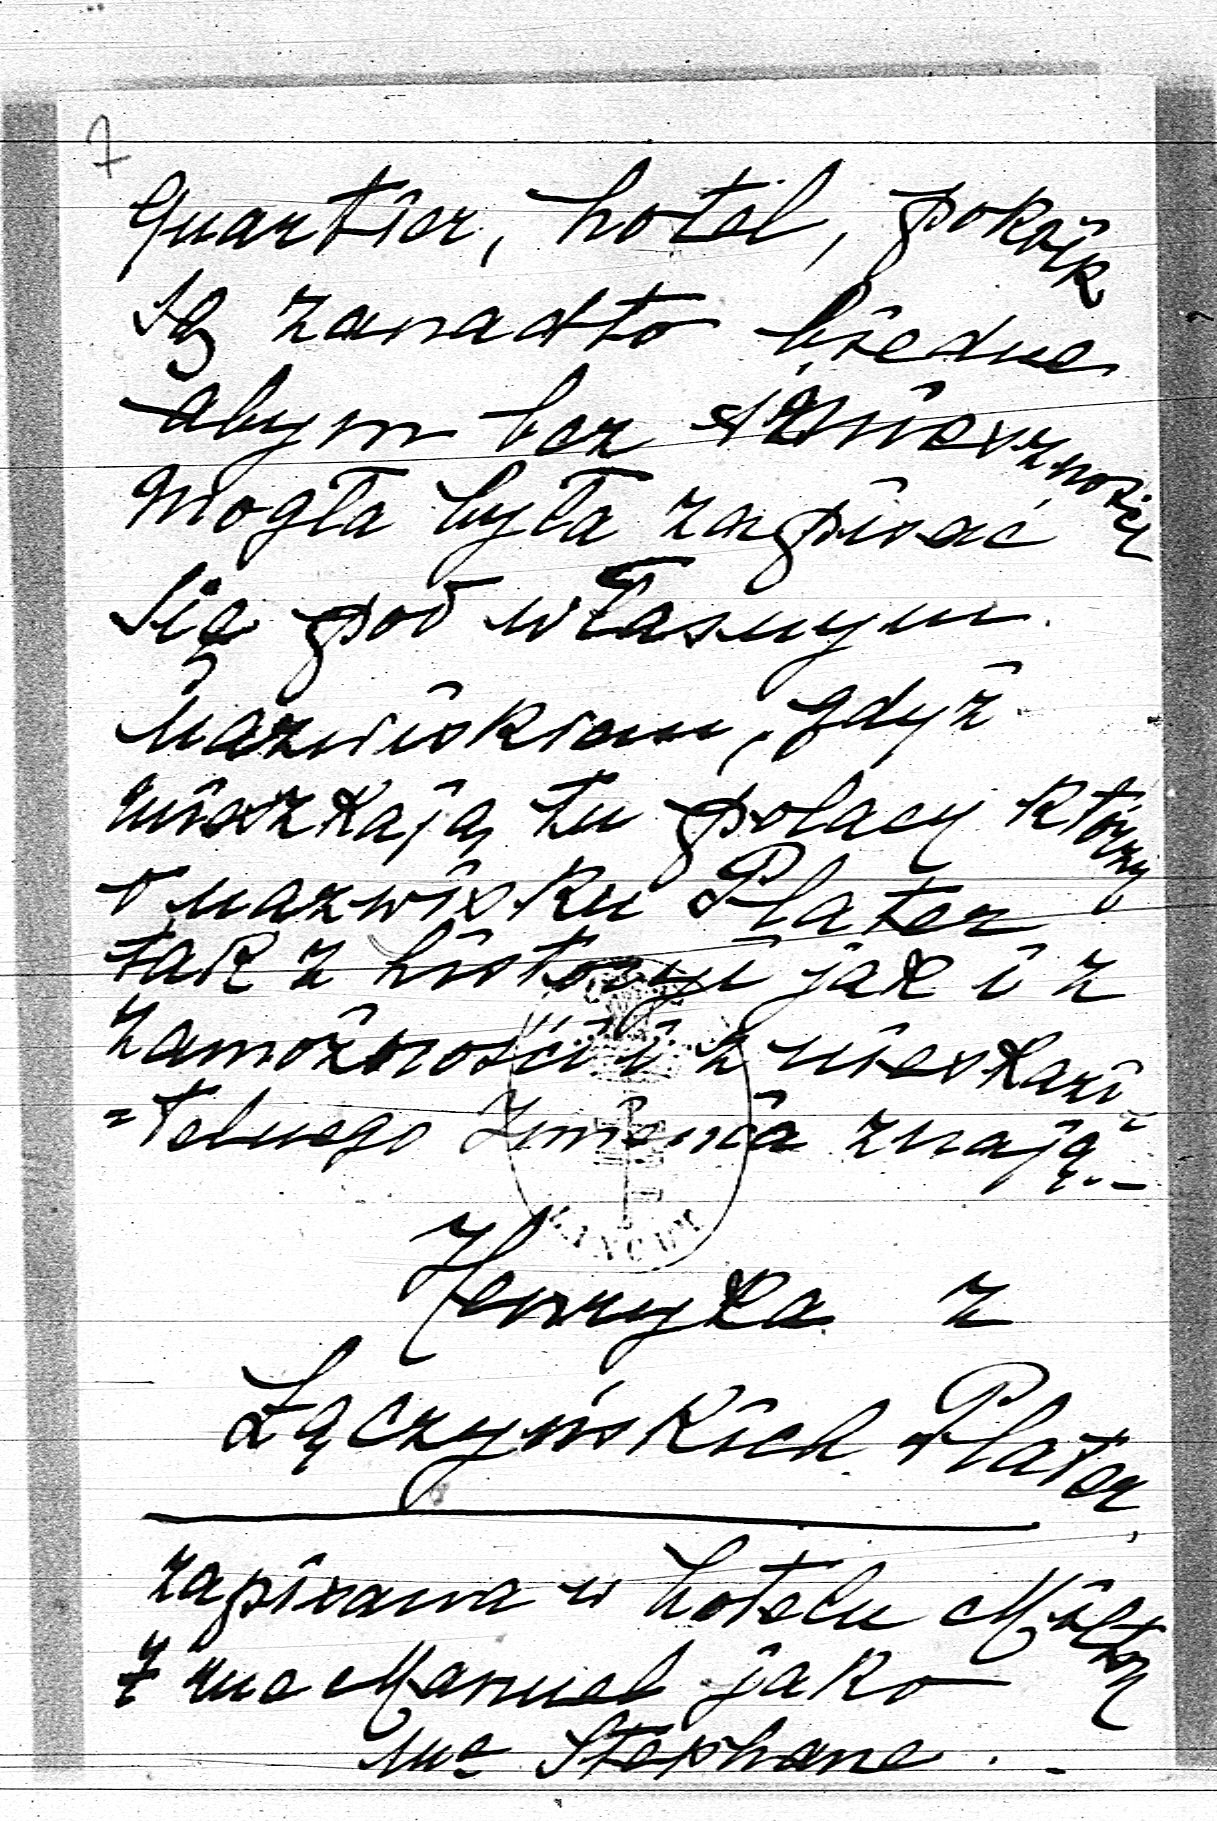 7
Quartier, hotel, pokoik
są zanadto biedne
abym bez śmieszności
mogła była zapisać
się pod własnym
nazwiskiem, gdyż
mieszkają tu polacy którzy
o nazwisku Plater
tak z historyi jak i z
zamożności i z nieskazi
=telnego Imienia znają.–
Henryka z
Łączyńskich Plater,
zapisana w hotelu Milton
7 rue Manuel jako
Mme Stephane . –
ŁAŃCUT